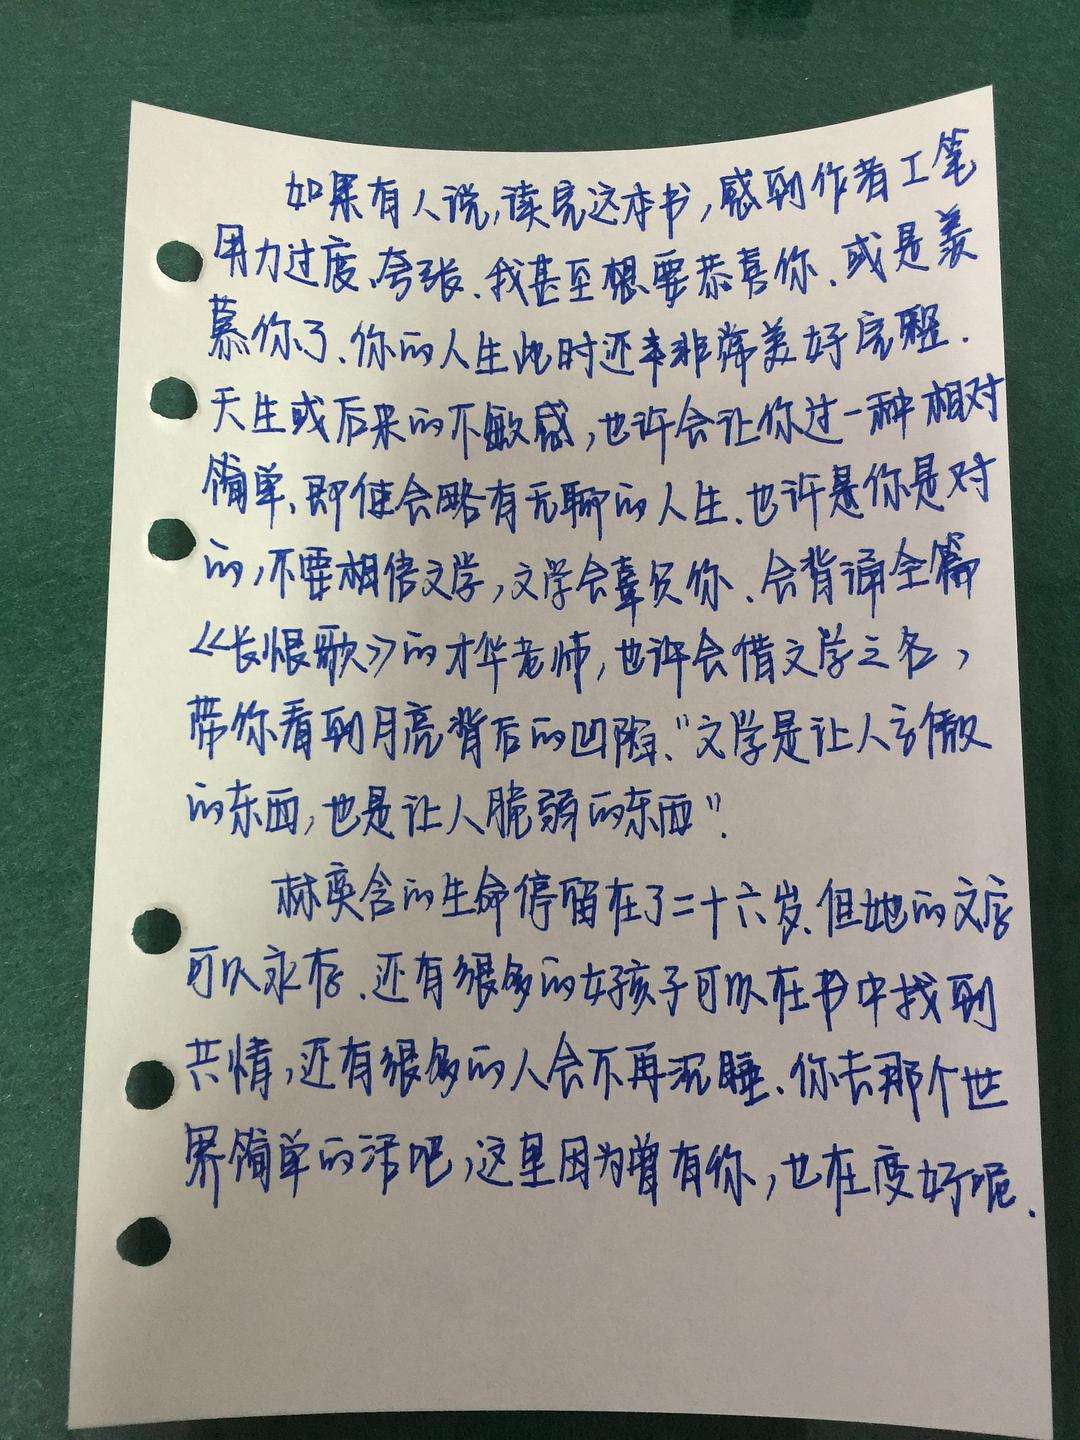 如果有人说,读完这本书,感到作者工笔
用力过度、夸张.我甚至想要恭喜你.或是羡
慕你了.你的人生此时还幸非常美好完整.
天生或后来的不敏感,也许会让你过一种相对
简单、即使会略有无聊的人生.也许是你是对
的,不要相信文学,文学会辜负你.会背诵全篇
《长恨歌》的才华老师,也许会借文学之名,
带你看到月亮背后的凹陷."文学是让人骄傲
的东西,也是让人脆弱的东西".
林奕含的生命停留在了二十六岁.但她的文字
可以永存.还有很多的女孩子可以在书中找到
共情,还有很多的人会不再沉睡.你去那个世
界简单的活吧,这里因为曾有你,也在变好呢.